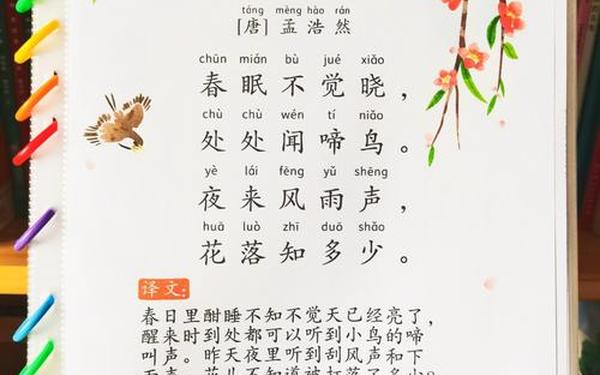 táng mèng hào rán
[唐] 孟浩然
chūn mián bù jué xiǎo
春眠不觉晓，
chù chù wén tí niǎo
处处闻啼鸟。
yè lái fēng yǔ shēng
夜来风雨声，
huā luò zhī duō shǎo
花落知多少。
译文:
春日里酣睡不知不觉天已经亮了，
醒来时到处都可以听到小鸟的啼
叫声。昨天夜里听到刮风声和下
雨声，花儿不知道被打落了多少。